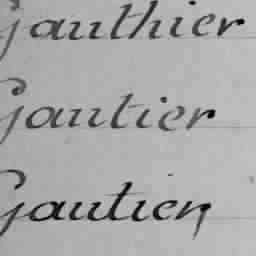 Gauthier
Gautier
Gautier